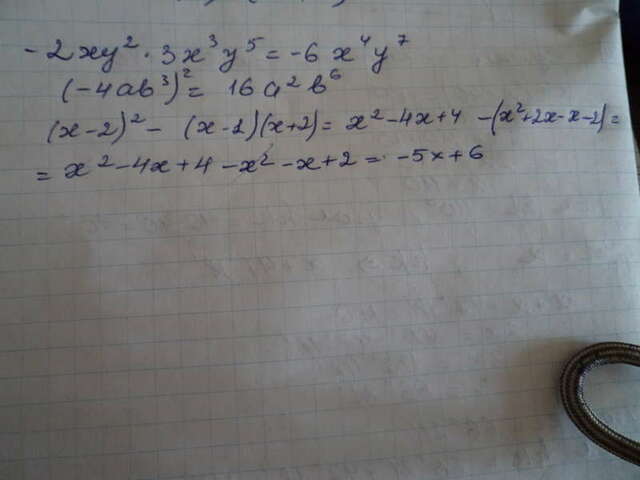 - 2xy² · 3x³y⁵ = -6x⁴y⁷
(-4ab³)² = 16a²b⁶
(x-2)² - (x-2)(x+2) = x² - 4x + 4 - (x² + 2x - x - 2) =
= x² - 4x + 4 - x² - x + 2 = -5x + 6